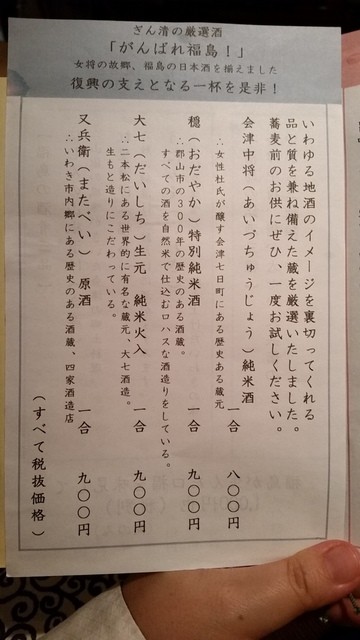 ぎん清の厳選酒
「がんばれ福島！」
女将の故郷、福島の日本酒を揃えました
復興の支えとなる一杯を是非！
いわゆる地酒のイメージを裏切ってくれる
品と質を兼ね備えた蔵を厳選いたしました。
蕎麦前のお供にぜひ、一度お試しください。
会津中将（あいづちゅうじょう）純米酒 一合 八〇〇円
∴女性杜氏が醸す会津七日町にある歴史ある蔵元
穏（おだやか）特別純米酒 一合 九〇〇円
∴郡山市の300年の歴史のある酒蔵。
すべての酒を自然米で仕込むロハスな酒造りをしている。
大七（だいしち）生元 純米火入 一合 九〇〇円
∴二本松にある世界的に有名な蔵元、大七酒造。
生もと造りにこだわっている。
又兵衛（またべい） 原酒 一合 九〇〇円
∴いわき市内郷にある歴史のある酒蔵、四家酒造店
（すべて税抜価格）